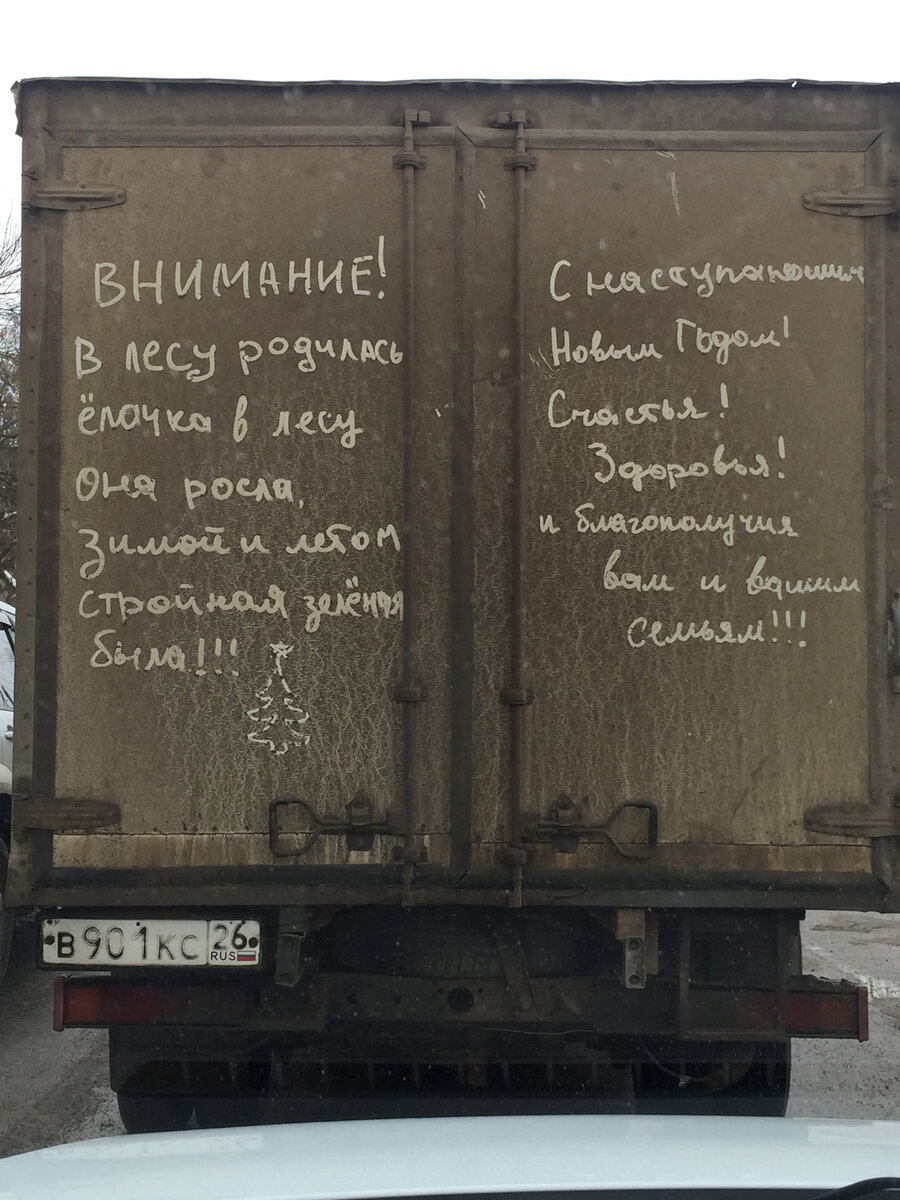 ВНИМАНИЕ!
В лесу родилась
ёлочка в лесу
Она росла,
Зимой и летом
стройная зелёная
была!!!
С наступающим
Новым Годом!
Счастья!
Здоровья!
и благополучия
вам и вашим
семьям!!!
В901КС 26
RUS